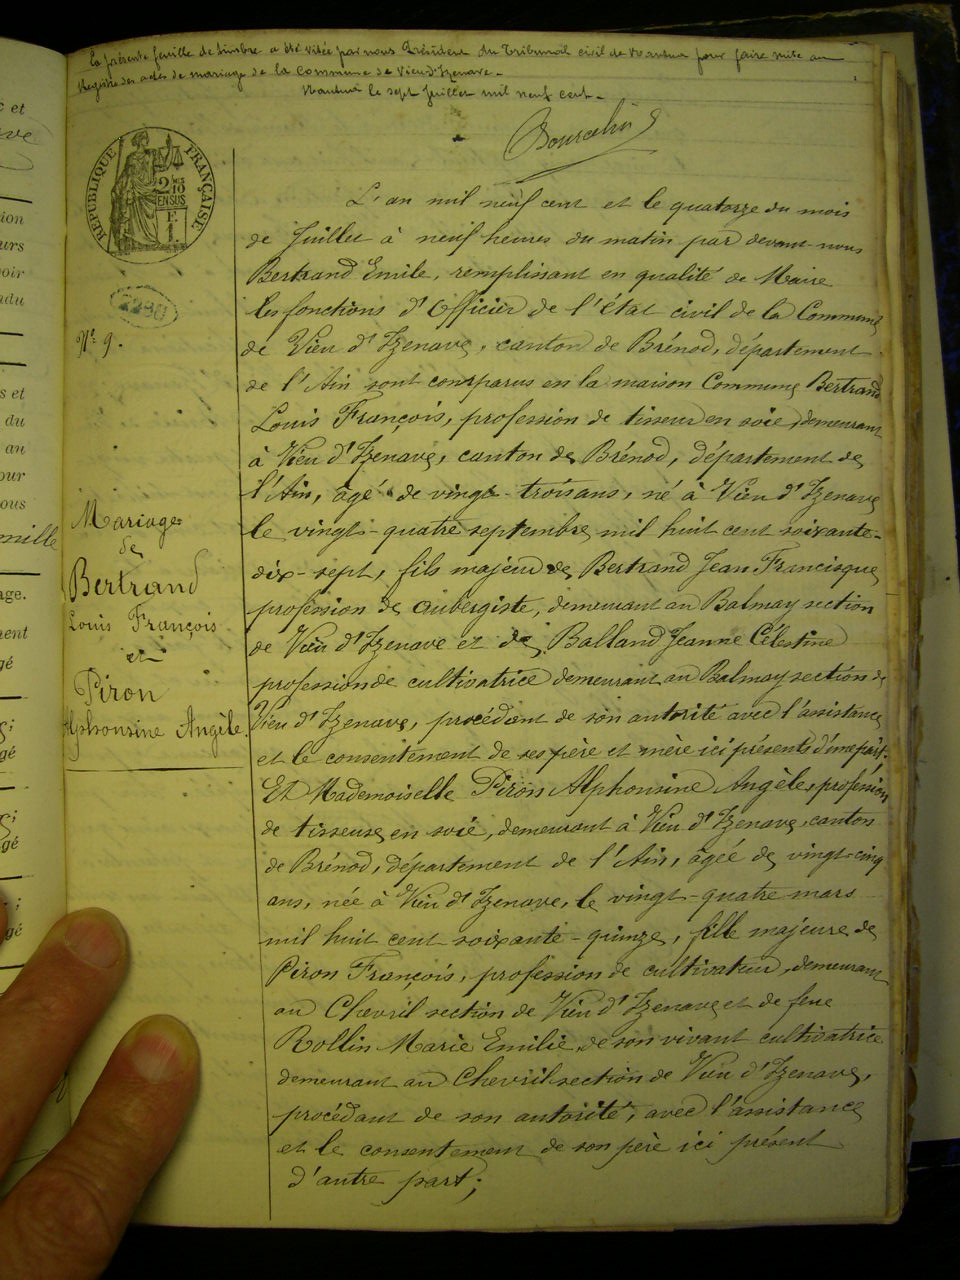 La présente feuille de timbre a été visée par nous Président du Tribunal civil de Nantua pour faire suite au
Registre des actes de mariage de la Commune de Vieu d'Izenave.
Nantua le sept Juillet mil neuf cent.
RÉPUBLIQUE FRANÇAISE
2/10
EN SUS
F.
1.
2290
N° 9.
Mariage
de
Bertrand
Louis François
et
Piron
Alphonsine Angèle.
L'an mil neuf cent et le quatorze du mois
de Juillet à neuf heures du matin par devant nous
Bertrand Emile, remplissant en qualité de Maire
les fonctions d'Officier de l'état civil de la Commune
de Vieu d'Izenave, canton de Brénod, département
de l'Ain sont comparus en la maison Commune Bertrand
Louis François, profession de tisseur en soie, demeurant
à Vieu d'Izenave, canton de Brénod, département de
l'Ain, âgé de vingt-trois ans, né à Vieu d'Izenave
le vingt-quatre septembre mil huit cent soixante-
dix-sept, fils majeur de Bertrand Jean Francisque
profession de aubergiste, demeurant au Balmay section
de Vieu d'Izenave et de Balland Jeanne Célestine
profession de cultivatrice demeurant au Balmay section de
Vieu d'Izenave, procédant de son autorité avec l'assistance
et le consentement de ses père et mère ici présents d'une part.
Et Mademoiselle Piron Alphonsine Angèle, profession
de tisseuse en soie, demeurant à Vieu d'Izenave, canton
de Brénod, département de l'Ain, âgée de vingt-cinq
ans, née à Vieu d'Izenave, le vingt-quatre mars
mil huit cent soixante-quinze, fille majeure de
Piron François, profession de cultivateur, demeurant
au Chevril section de Vieu d'Izenave et de feue
Rollin Marie Emilie, de son vivant cultivatrice
demeurant au Chevril section de Vieu d'Izenave,
procédant de son autorité, avec l'assistance
et le consentement de son père ici présent
d'autre part;